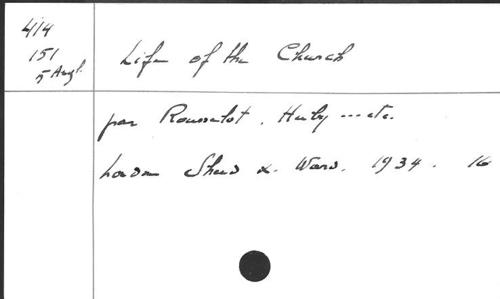 414
151
5 Angl.
Life of the Church
par Rousselot, Huby --- etc.
London Sheed &. Ward. 1934. 16